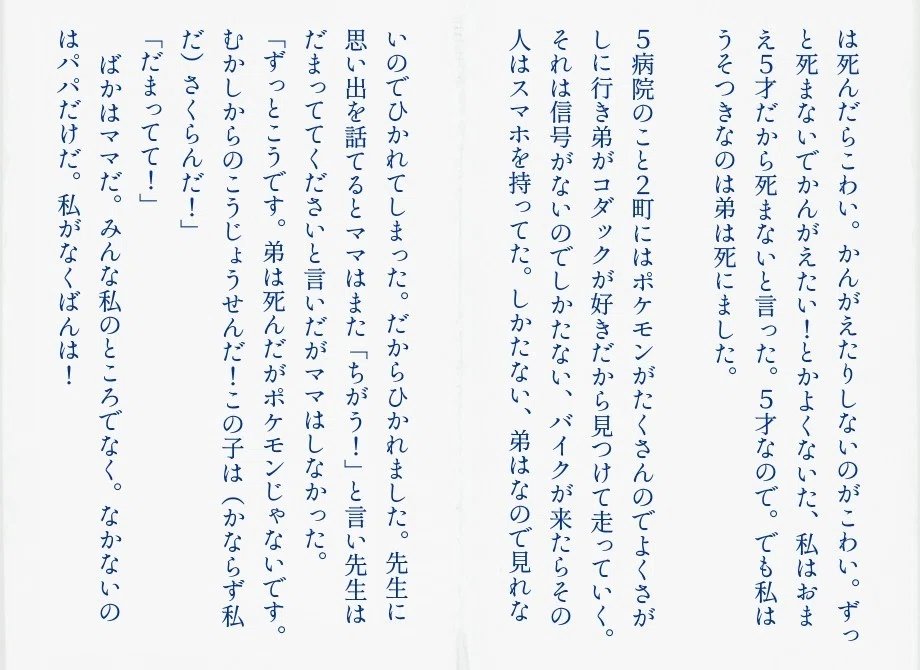 は死んだらこわい。かんがえたりしないのがこわい。ずっ
と死まないでかんがえたい！とかよくないた、私はおま
え５才だから死まないと言った。５才なので。でも私は
うそつきなのは弟は死にました。
５病院のこと２町にはポケモンがたくさんのでよくさが
しに行き弟がコダックが好きだから見つけて走っていく。
それは信号がないのでしかたない、バイクが来たらその
人はスマホを持ってた。しかたない、弟はなので見れな
いのでひかれてしまった。だからひかれました。先生に
思い出を話てるとママはまた「ちがう！」と言い先生は
だまっててくださいと言いだがママはしなかった。
「ずっとこうです。弟は死んだがポケモンじゃないです。
むかしからのこうじょうせんだ！この子は（かならず私
だ）さくらんだ！」
「だまってて！」
ばかはママだ。みんな私のところでなく。なかないの
はパパだけだ。私がなくばんは！